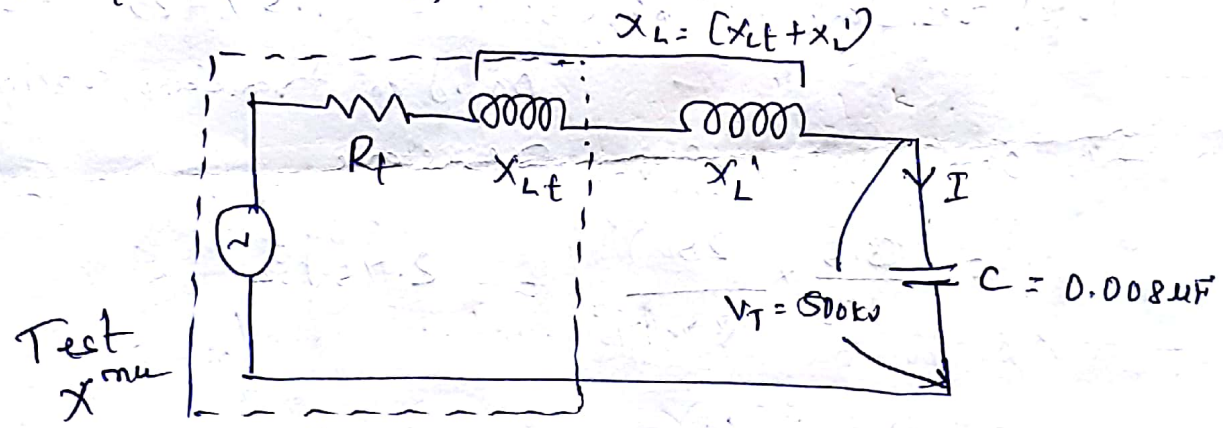 X_L = (X_Lt + X_L')
R_t
X_Lt
X_L'
I
~
C = 0.008 μF
V_T = 500kV
Test
X^mer